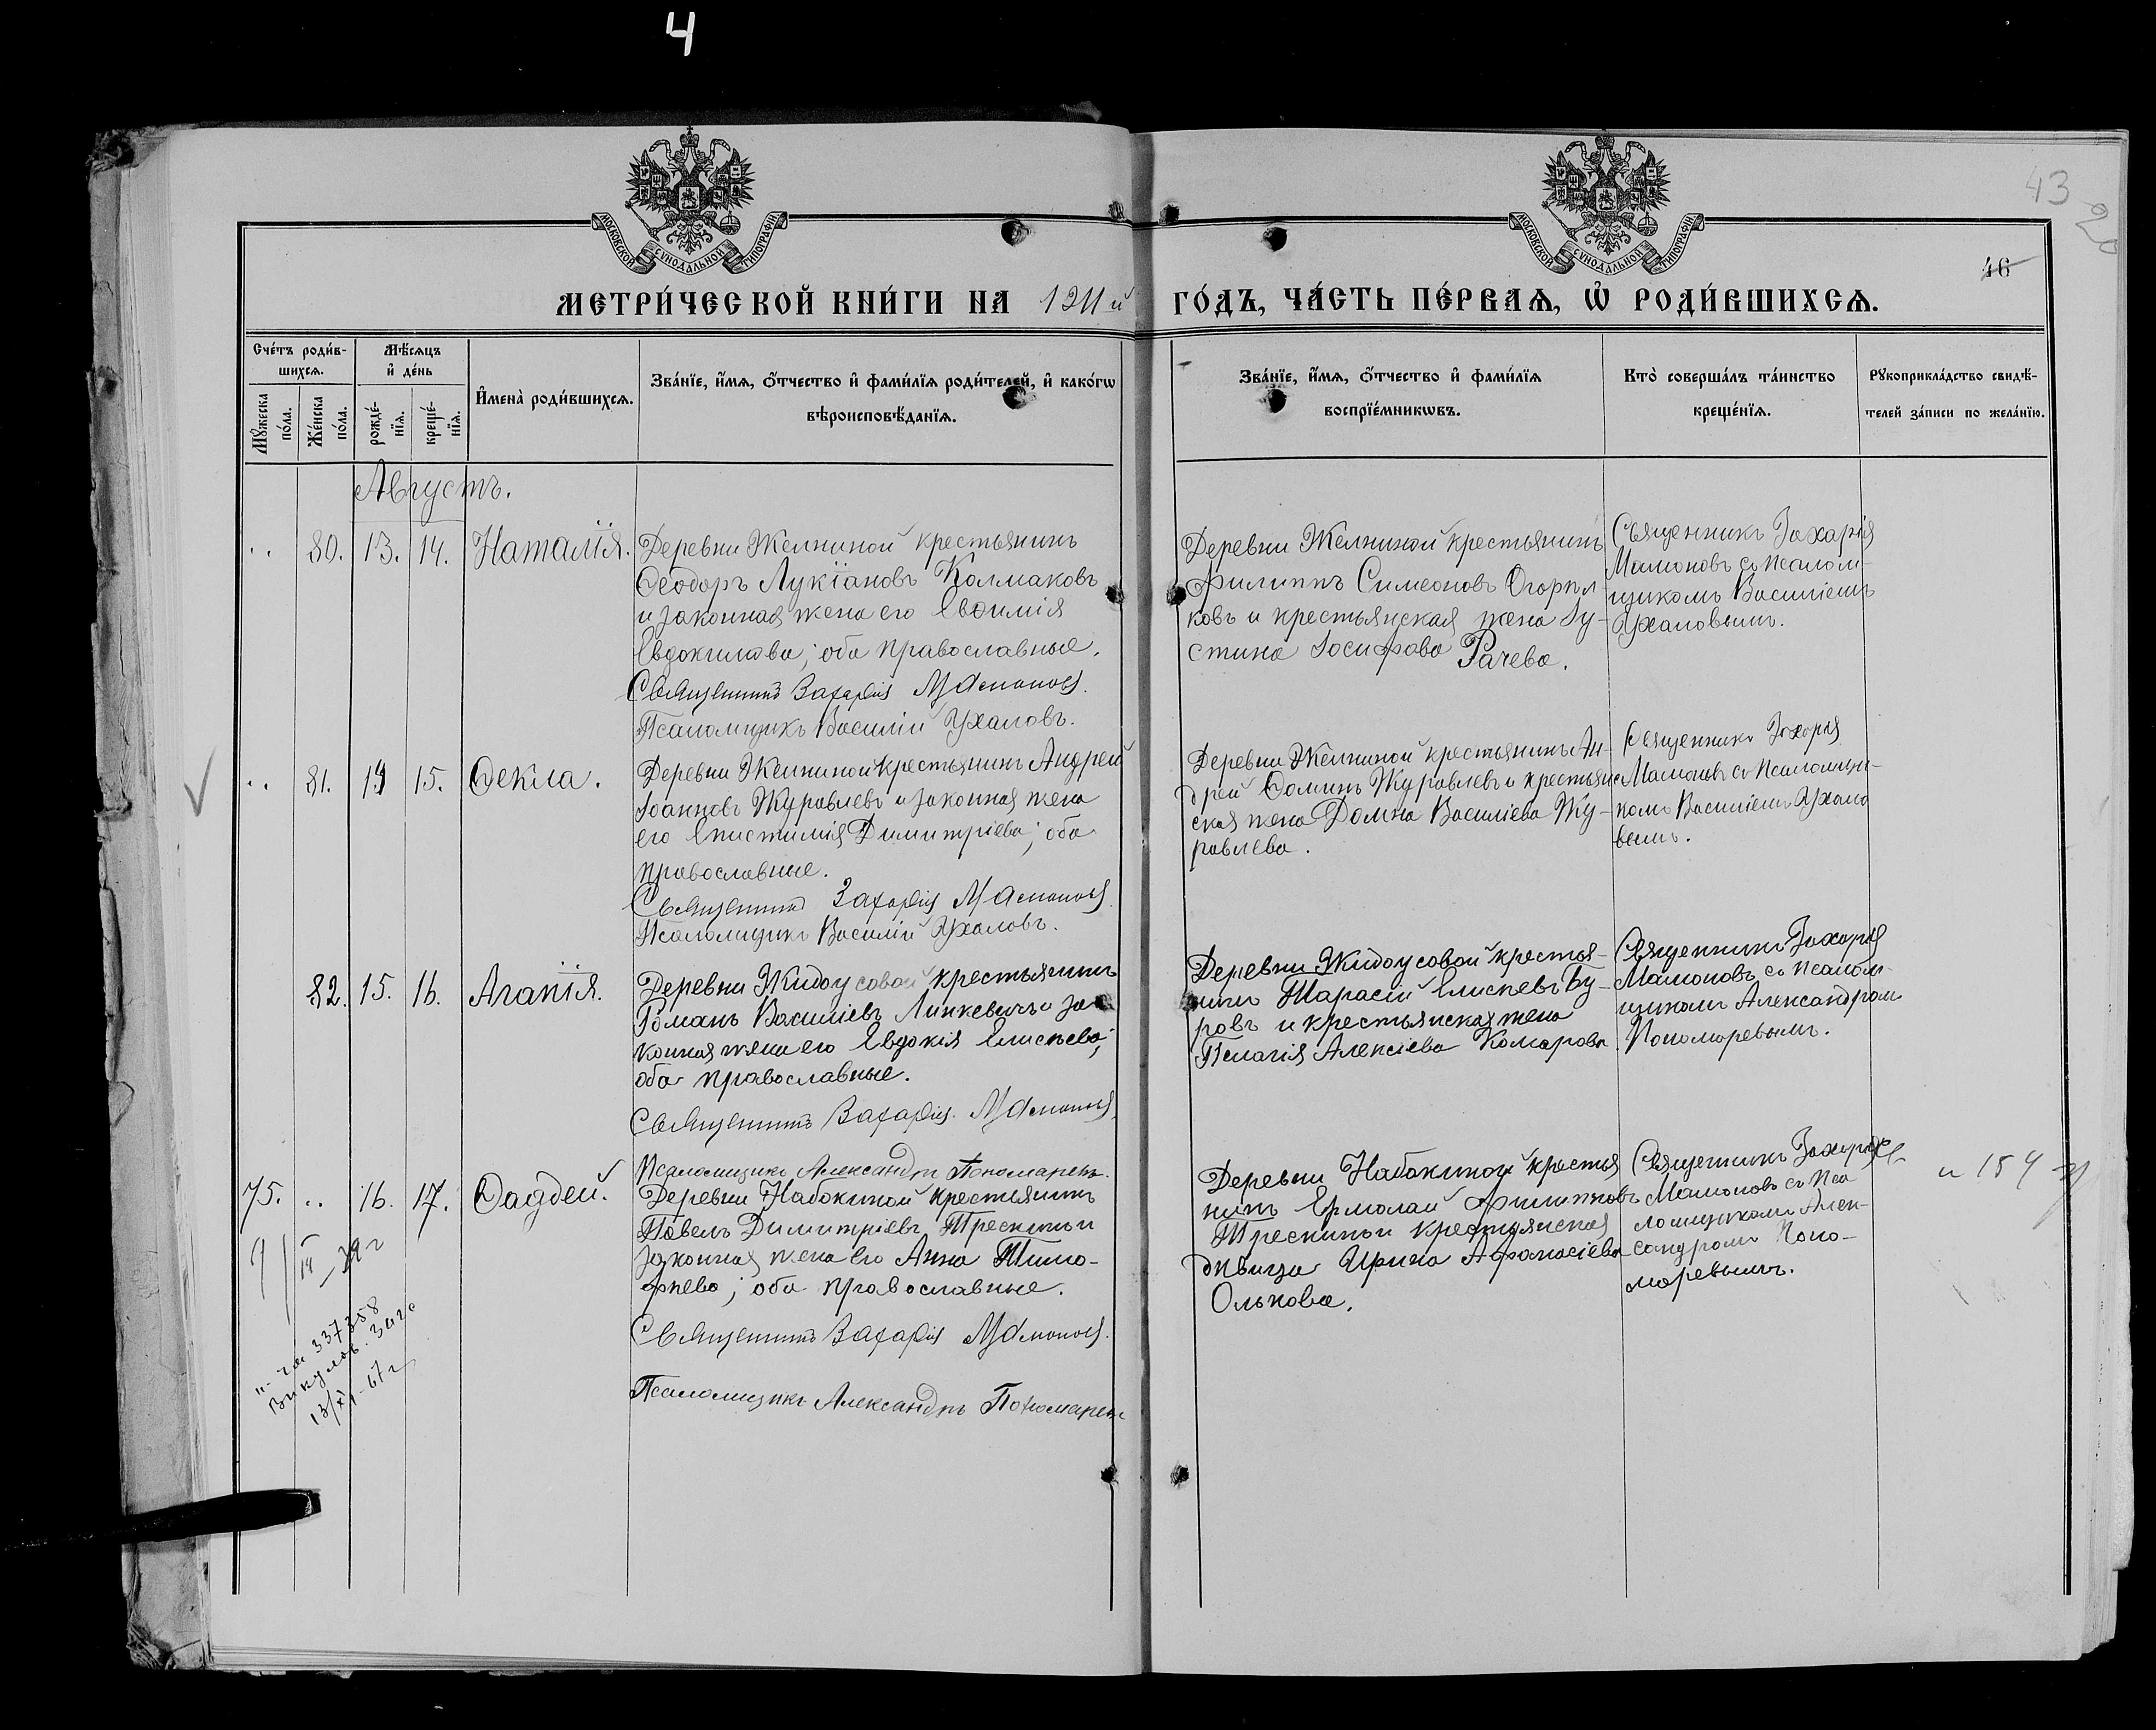 4
43
46
МОСКОВСКОЙ СѴНОДАЛЬНОЙ ТИПОГРАФІИ
МОСКОВСКОЙ СѴНОДАЛЬНОЙ ТИПОГРАФІИ
МЕТРИ́ЧЕСКОЙ КНИ́ГИ НА 1911 й ГО́ДЪ, ЧА́СТЬ ПЕ́РВАѦ, Ѡ҆ РОДИ́ВШИХСѦ.
Сче́тъ роди́в-
шихсѧ.
Мꙋ́жеска по́ла.
Же́нска по́ла.
Мѣ́сѧцъ
и҆ де́нь
рожде́-
нїѧ.
креще́-
нїѧ.
И҆мена̀ роди́вшихсѧ.
Зва́нїе, и҆́мѧ, ѻ҆́тчество и҆ фами́лїѧ роди́телей, и҆ како́гѡ
вѣроисповѣ́данїѧ.
Зва́нїе, и҆́мѧ, ѻ҆́тчество и҆ фами́лїѧ
воспрїе́мникѡвъ.
Кто̀ соверша́лъ та́инство
креще́нїѧ.
Рꙋкоприкла́дство свидѣ́-
телей за́писи по жела́нїю.
Августъ.
.. 80. 13. 14. Наталія.
Деревни Желниной крестьянинъ
Ѳеодоръ Лукіановъ Колмаковъ
и законная жена его Евѳимія
Евдокимова; оба православные.
Священникъ Захарія Мамоновъ.
Псаломщикъ Василій Ухаловъ.
Деревни Желниной крестьянинъ
Филиппъ Симеоновъ Огорѣл-
ковъ и крестьянская жена Іу-
стина Іосифова Рачева.
Священникъ Захарія
Мамоновъ съ псалом-
щикомъ Василіемъ
Ухаловымъ.
.. 81. 14 15. Ѳекла.
Деревни Желниной крестьянинъ Андрей
Іоанновъ Журавлевъ и законная жена
его Епистимія Димитріева; оба
православные.
Священникъ Захарія Мамоновъ
Псаломщикъ Василій Ухаловъ.
Деревни Желниной крестьянинъ Ан-
дрей Ѳоминъ Журавлевъ и крестьян
ская жена Домна Василіева Жу-
равлева.
Священникъ Захарія
Мамоновъ съ псаломщи-
комъ Василіемъ Ухало
вымъ.
82. 15. 16. Агапія.
Деревни Жидоусовой крестьянинъ
Романъ Василіевъ Линкевичъ и за
конная жена его Евдокія Елисѣева;
оба православные.
Священникъ Захарія Мамоновъ
Псаломщикъ Александръ Пономаревъ.
Деревни Жидоусовой крестья-
нинъ Тарасій Елисѣевъ Бу-
ровъ и крестьянская жена
Пелагія Алексіева Комарова
Священникъ Захарія
Мамоновъ съ псалом-
щикомъ Александромъ
Пономаревымъ.
75. .. 16. 17. Ѳаддей.
Деревни Набокиной крестьянинъ
Павелъ Димитріевъ Трескинъ и
законная жена его Анна Тимо-
фѣева; оба православные.
Священникъ Захарія Мамоновъ.
Псаломщикъ Александръ Пономаревъ
Деревни Набокиной крестья
нинъ Ермолай Филипповъ
Трескинъ и крестьянская
дѣвица Ирина Афанасіева
Олькова.
Священникъ Захарія
Мамоновъ съ пса
ломщикомъ Алек-
сандромъ Поно-
маревымъ.
337358
13/XI-67 г